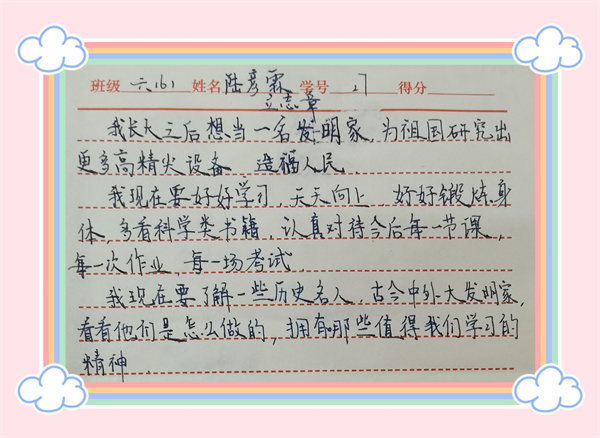 班级 六(6) 姓名 陆彦霖 学号 27 得分
立志章
我长大之后想当一名发明家,为祖国研究出
更多高精尖设备 造福人民.
我现在要好好学习,天天向上,好好锻炼身
体,多看科学类书籍,认真对待今后每一节课,
每一次作业,每一场考试.
我现在要了解一些历史名人,古今中外大发明家,
看看他们是怎么做的,拥有哪些值得我们学习的
精神.